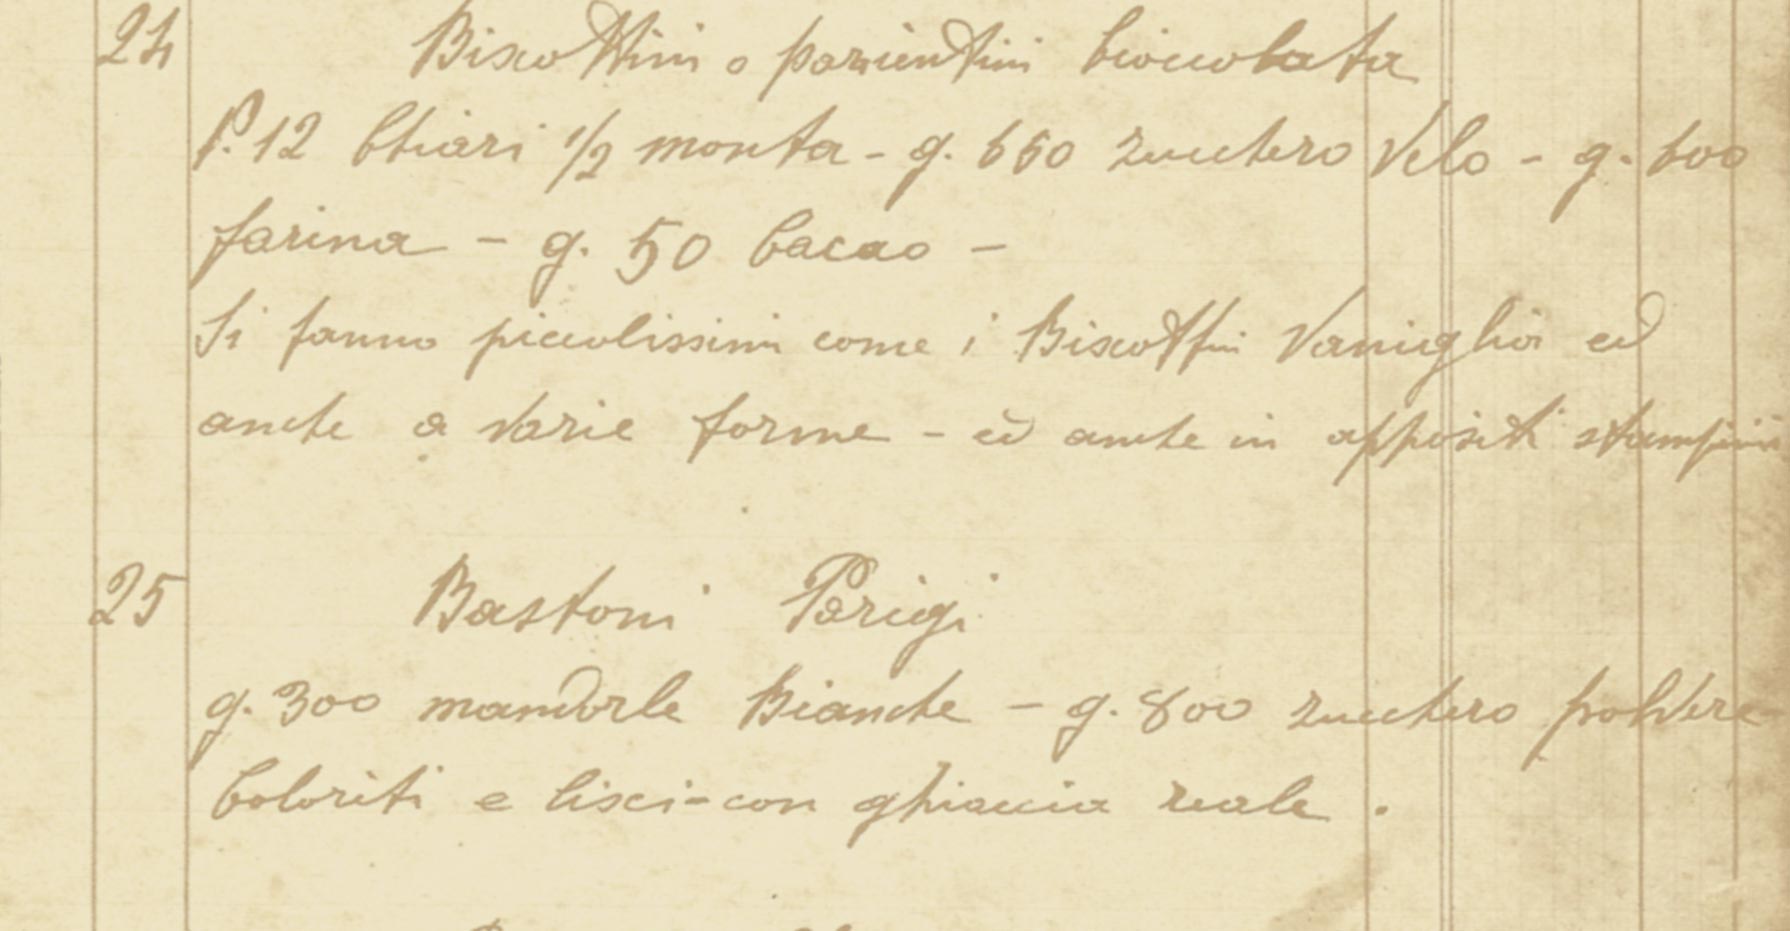 24 Biscottini o pazientini Cioccolata
P. 12 Chiari 1/2 monta - g. 650 zucchero Velo - g. 600
farina - g. 50 Cacao -
Si fanno piccolissimi come i Biscottini Vaniglia ed
anche a varie forme - ed anche in appositi stampini
25 Bastoni Parigi
g. 300 mandorle Bianche - g. 800 zucchero polvere
Coloriti e lisci - con ghiaccia reale .